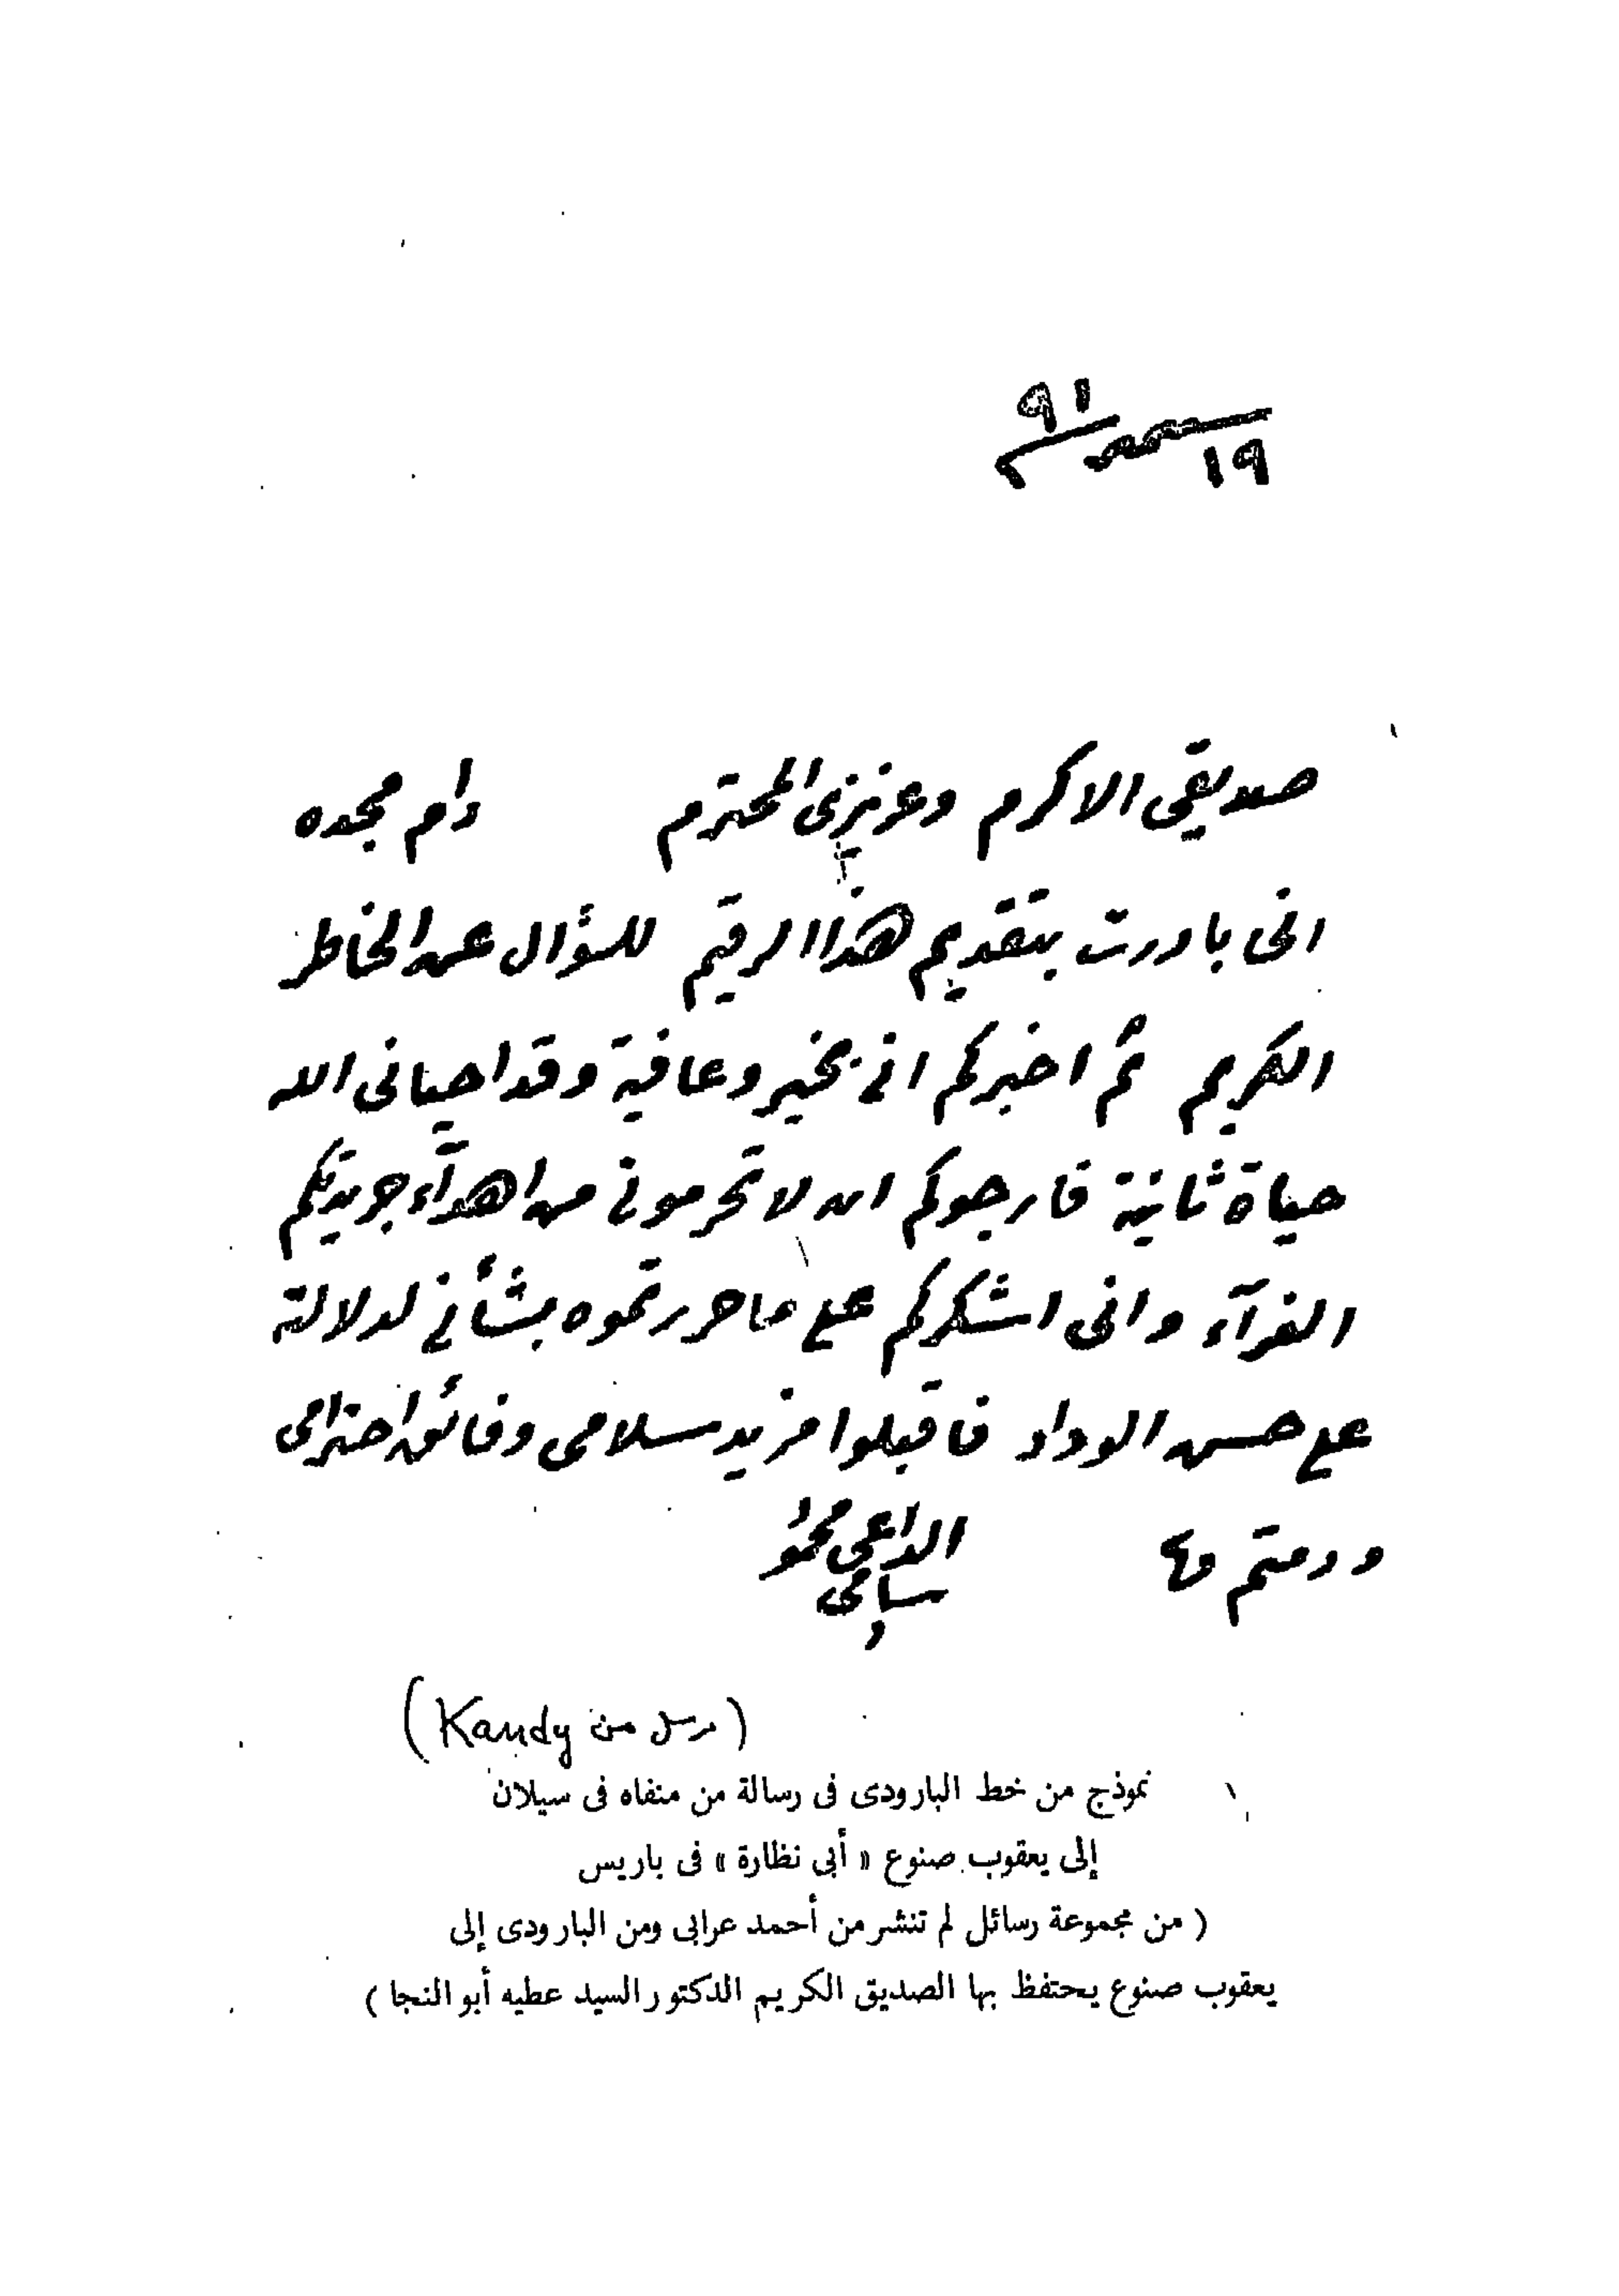 ٩١
١٩
صديقى الاكرم وعزيزى المحترم دام مجده
انى بادرت بتقديم هذا الرقيم للسؤال عن الخاطر
الكريم ثم اخبركم انى بخير وعافية وقد احيانى الله
حياة ثانية فارجوكم ان لا تحرمونى من اهدآء جريدتكم
الغرآء وانى اشكركم على ما حررتموه بشأنى لدلالة
على حسن الوداد فاقبلوا مزيد سلامى وفائق احترامى
ودمتم
الداعى محمود
سامى
(مرسل من Kandy)
نموذج من خط البارودى فى رسالة من منفاه فى سيلان
إلى يعقوب صنوع « أبى نظارة » فى باريس
( من مجموعة رسائل لم تنشر من أحمد عرابى ومن البارودى إلى
يعقوب صنوع يحتفظ بها الصديق الكريم الدكتور السيد عطيه أبو النجا )